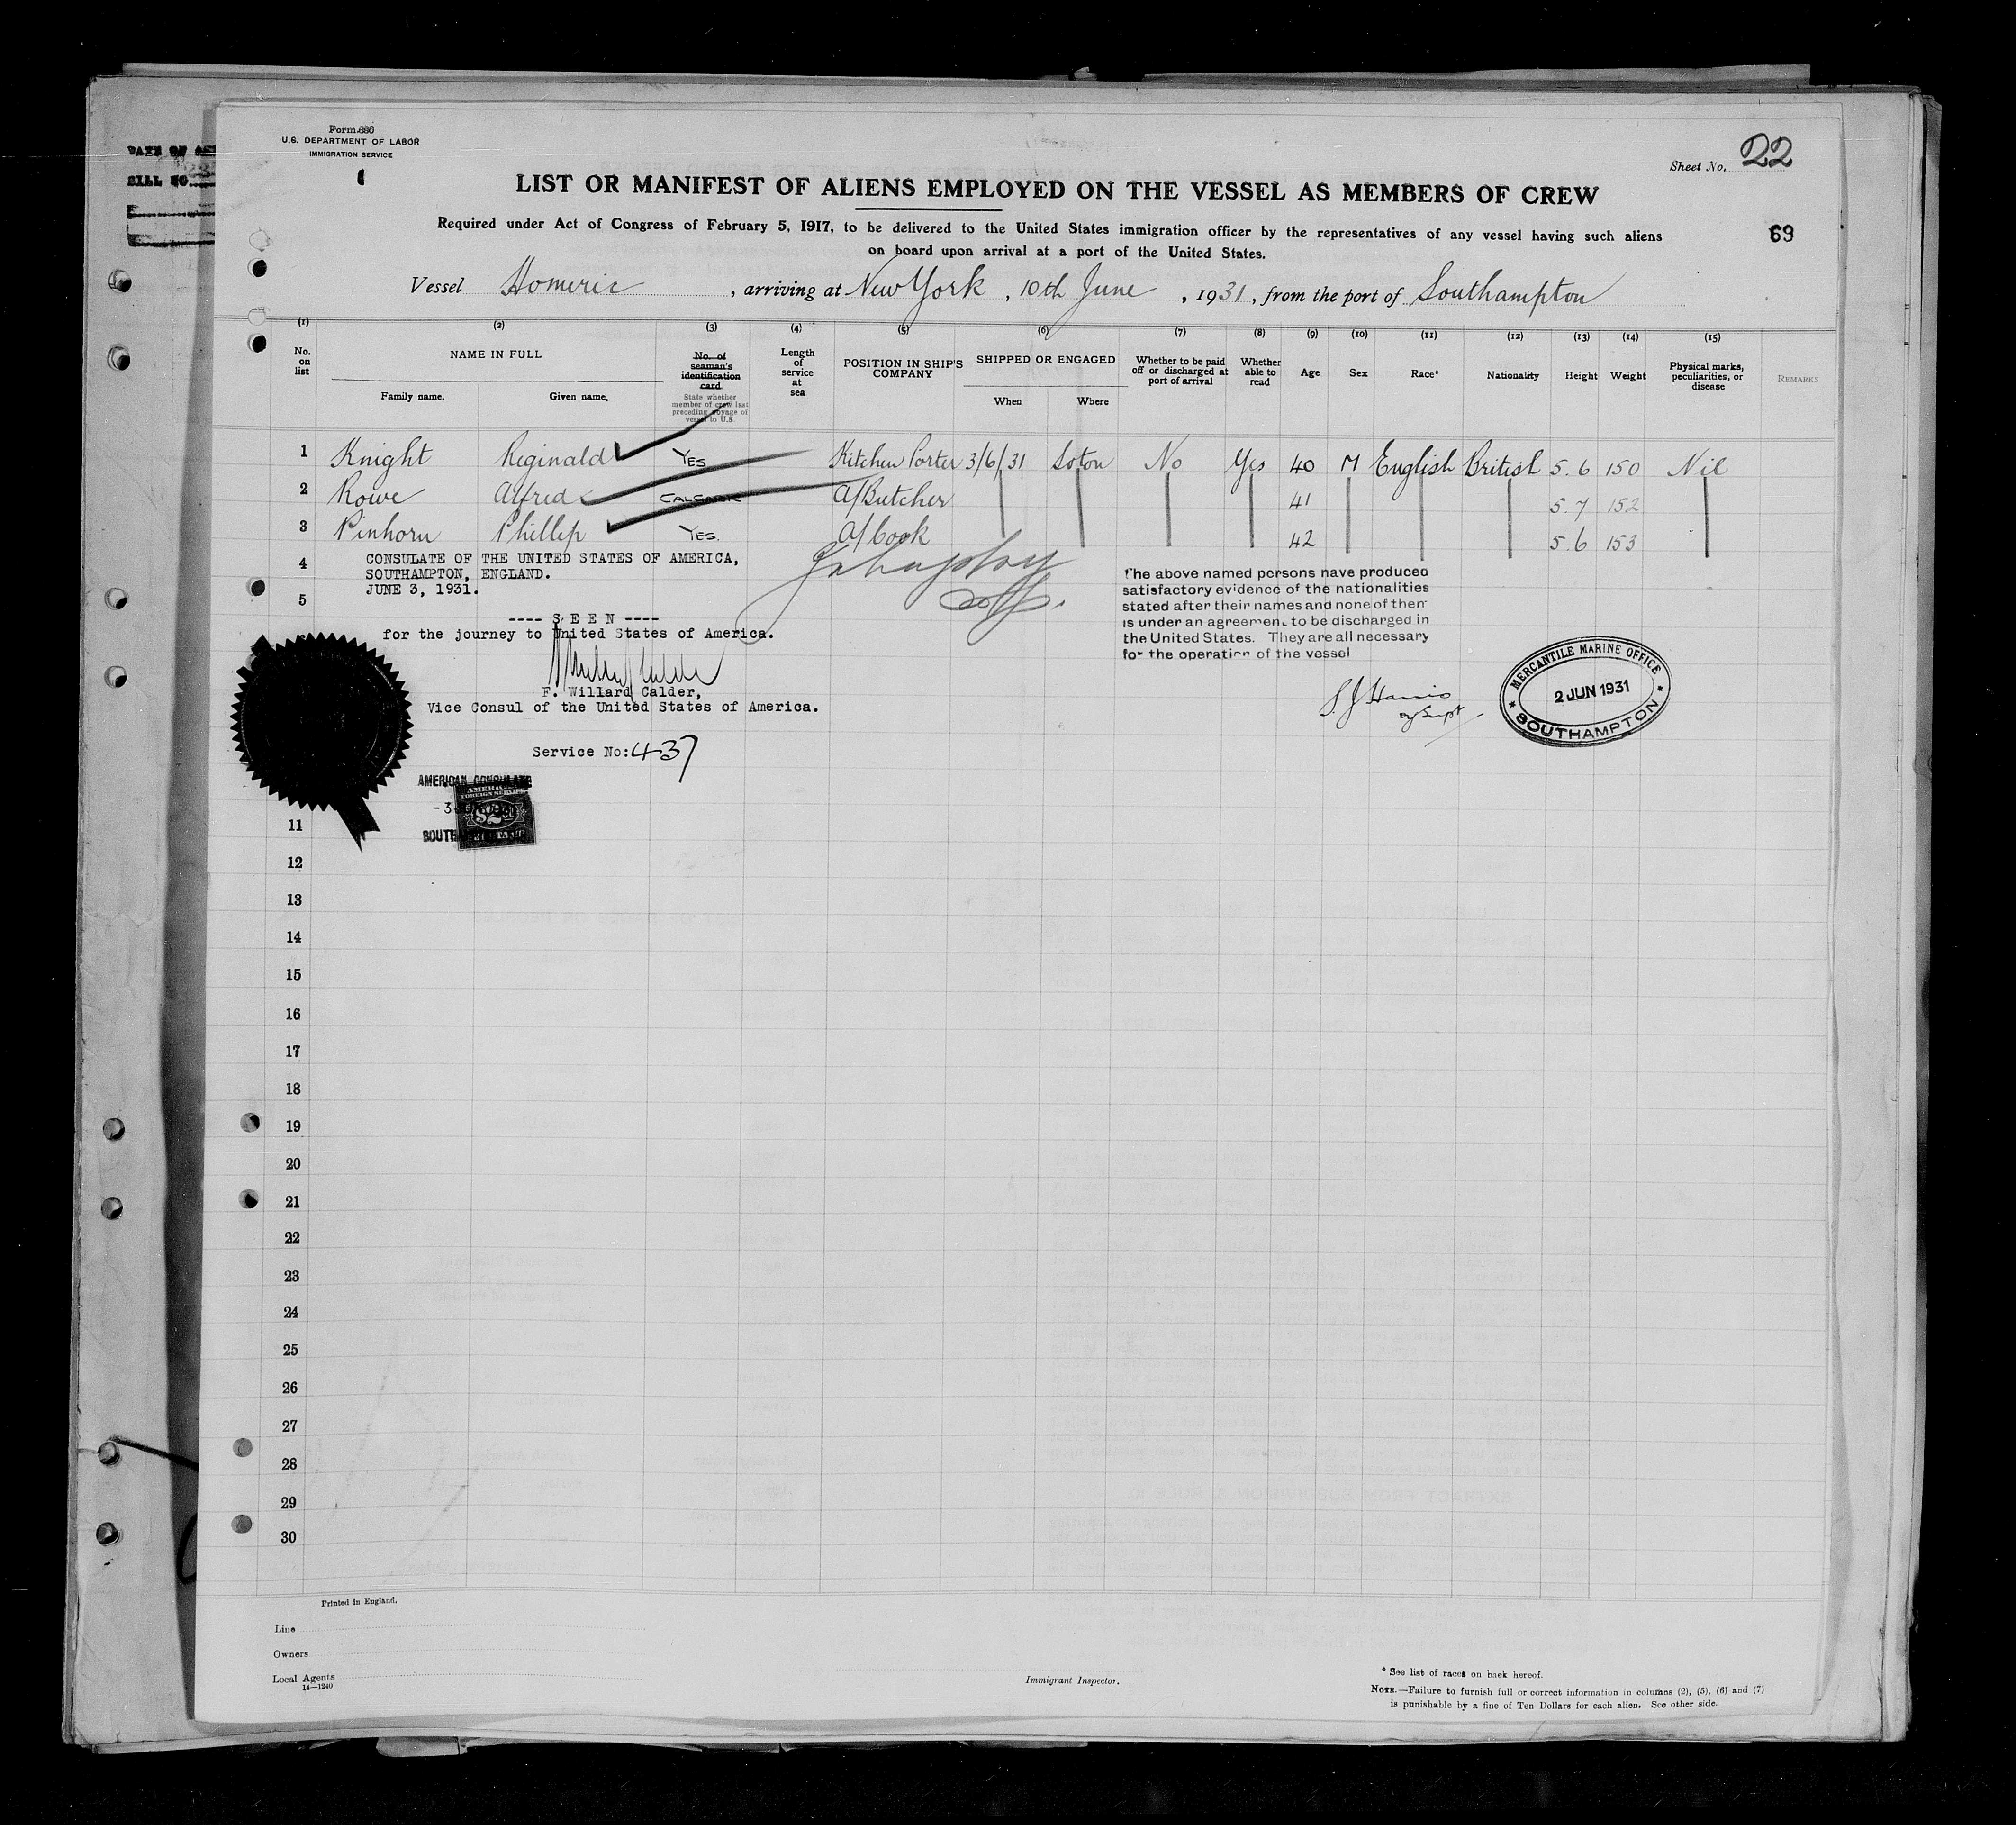 Form 680
U.S. DEPARTMENT OF LABOR
IMMIGRATION SERVICE
Sheet No. 22
LIST OR MANIFEST OF ALIENS EMPLOYED ON THE VESSEL AS MEMBERS OF CREW
Required under Act of Congress of February 5, 1917, to be delivered to the United States immigration officer by the representatives of any vessel having such aliens
on board upon arrival at a port of the United States.
69
Vessel Homeric, arriving at New York, 10th June, 1931, from the port of Southampton
(1) (2) (3) (4) (5) (6) (7) (8) (9) (10) (11) (12) (13) (14) (15)
No. on list
NAME IN FULL
Family name. Given name.
No. of seaman's identification card.
State whether member of crew last preceding voyage of vessel to U.S.
Length of service at sea
POSITION IN SHIP'S COMPANY
SHIPPED OR ENGAGED
When Where
Whether to be paid off or discharged at port of arrival
Whether able to read
Age
Sex
Race*
Nationality
Height
Weight
Physical marks, peculiarities, or disease
REMARKS
1 Knight Reginald YES Kitchen Porter 3/6/31 Soton No Yes 40 M English British 5.6 150 Nil
2 Rowe Alfred CALGARIC A/Butcher 41 5.7 152
3 Pinhorn Phillip YES. A/Cook 42 5.6 153
4
5
CONSULATE OF THE UNITED STATES OF AMERICA,
SOUTHAMPTON, ENGLAND.
JUNE 3, 1931.
---- S E E N ----
for the journey to United States of America.
F. Willard Calder,
Vice Consul of the United States of America.
Service No: 437
The above named persons have produced
satisfactory evidence of the nationalities
stated after their names and none of them
is under an agreement to be discharged in
the United States. They are all necessary
for the operation of the vessel
S. J. Harris
MERCANTILE MARINE OFFICE
2 JUN 1931
SOUTHAMPTON
AMERICAN CONSULATE
11
12
13
14
15
16
17
18
19
20
21
22
23
24
25
26
27
28
29
30
Printed in England.
Line
Owners
Local Agents
14—1240
Immigrant Inspector.
* See list of races on back hereof.
NOTE.—Failure to furnish full or correct information in columns (2), (5), (6) and (7)
is punishable by a fine of Ten Dollars for each alien. See other side.